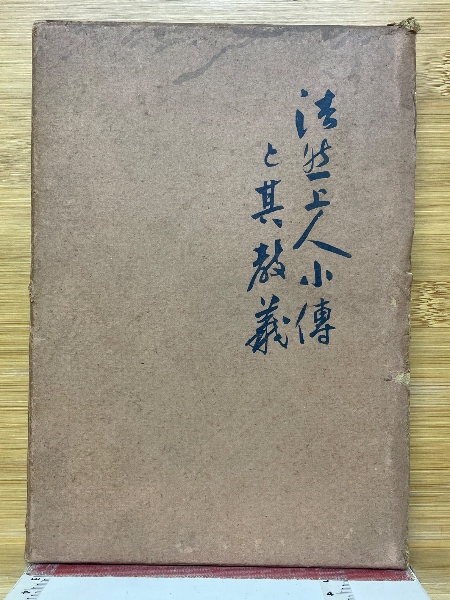 法然上人小傳
と其教義